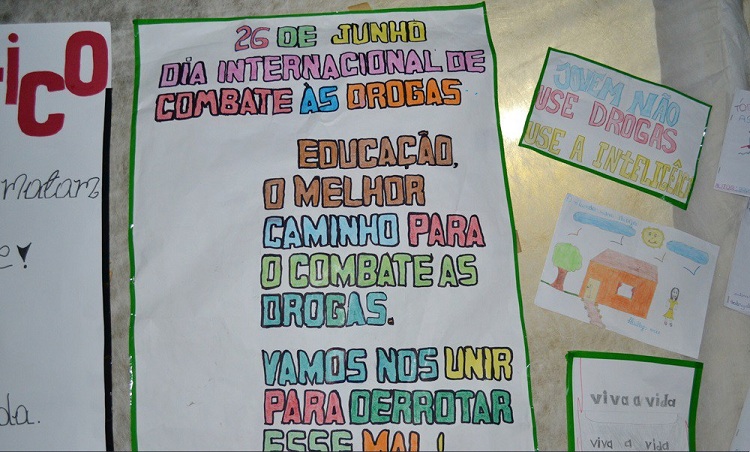 ICO
matam
da.
26 DE JUNHO
DIA INTERNACIONAL DE
COMBATE ÀS DROGAS
EDUCAÇÃO,
O MELHOR
CAMINHO PARA
O COMBATE AS
DROGAS.
VAMOS NOS UNIR
PARA DERROTAR
ESSE MAL!
JOVEM NÃO
USE DROGAS
USE A INTELIGÊNC
viva a vida
viva a vida